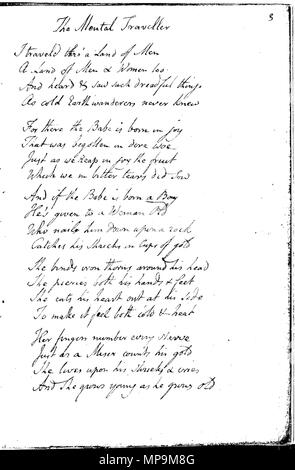 3
The Mental Traveller
I traveld thro' a Land of Men
A Land of Men & Women too
And heard & saw such dreadful things
As cold Earth wanderers never knew
For there the Babe is born in joy
That was begotten in dire woe
Just as we Reap in joy the fruit
Which we in bitter tears did Sow
And if the Babe is born a Boy
He's given to a Woman Old
Who nails him down upon a rock
Catches his Shrieks in Cups of gold
She binds iron thorns around his head
She pierces both his hands & feet
She cuts his heart out at his Side
To make it feel both cold & heat
Her fingers number every Nerve
Just as a Miser counts his gold
She lives upon his Shrieks & cries
And She grows young as he grows Old
alamy
Image ID: MP9M8G
www.alamy.com